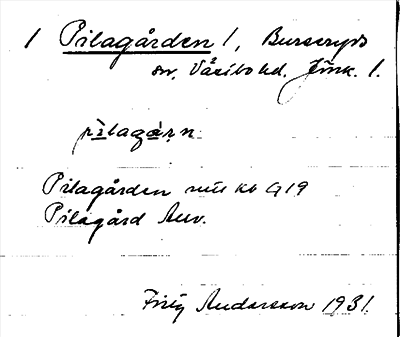 1 Pilagården 1, Burseryds
sn, Västbo hd, Jönk. l.
pìlagá̀ṛṇ
Pilagården kb G19
Pilagård Auv.
Fritz Andersson 1931.